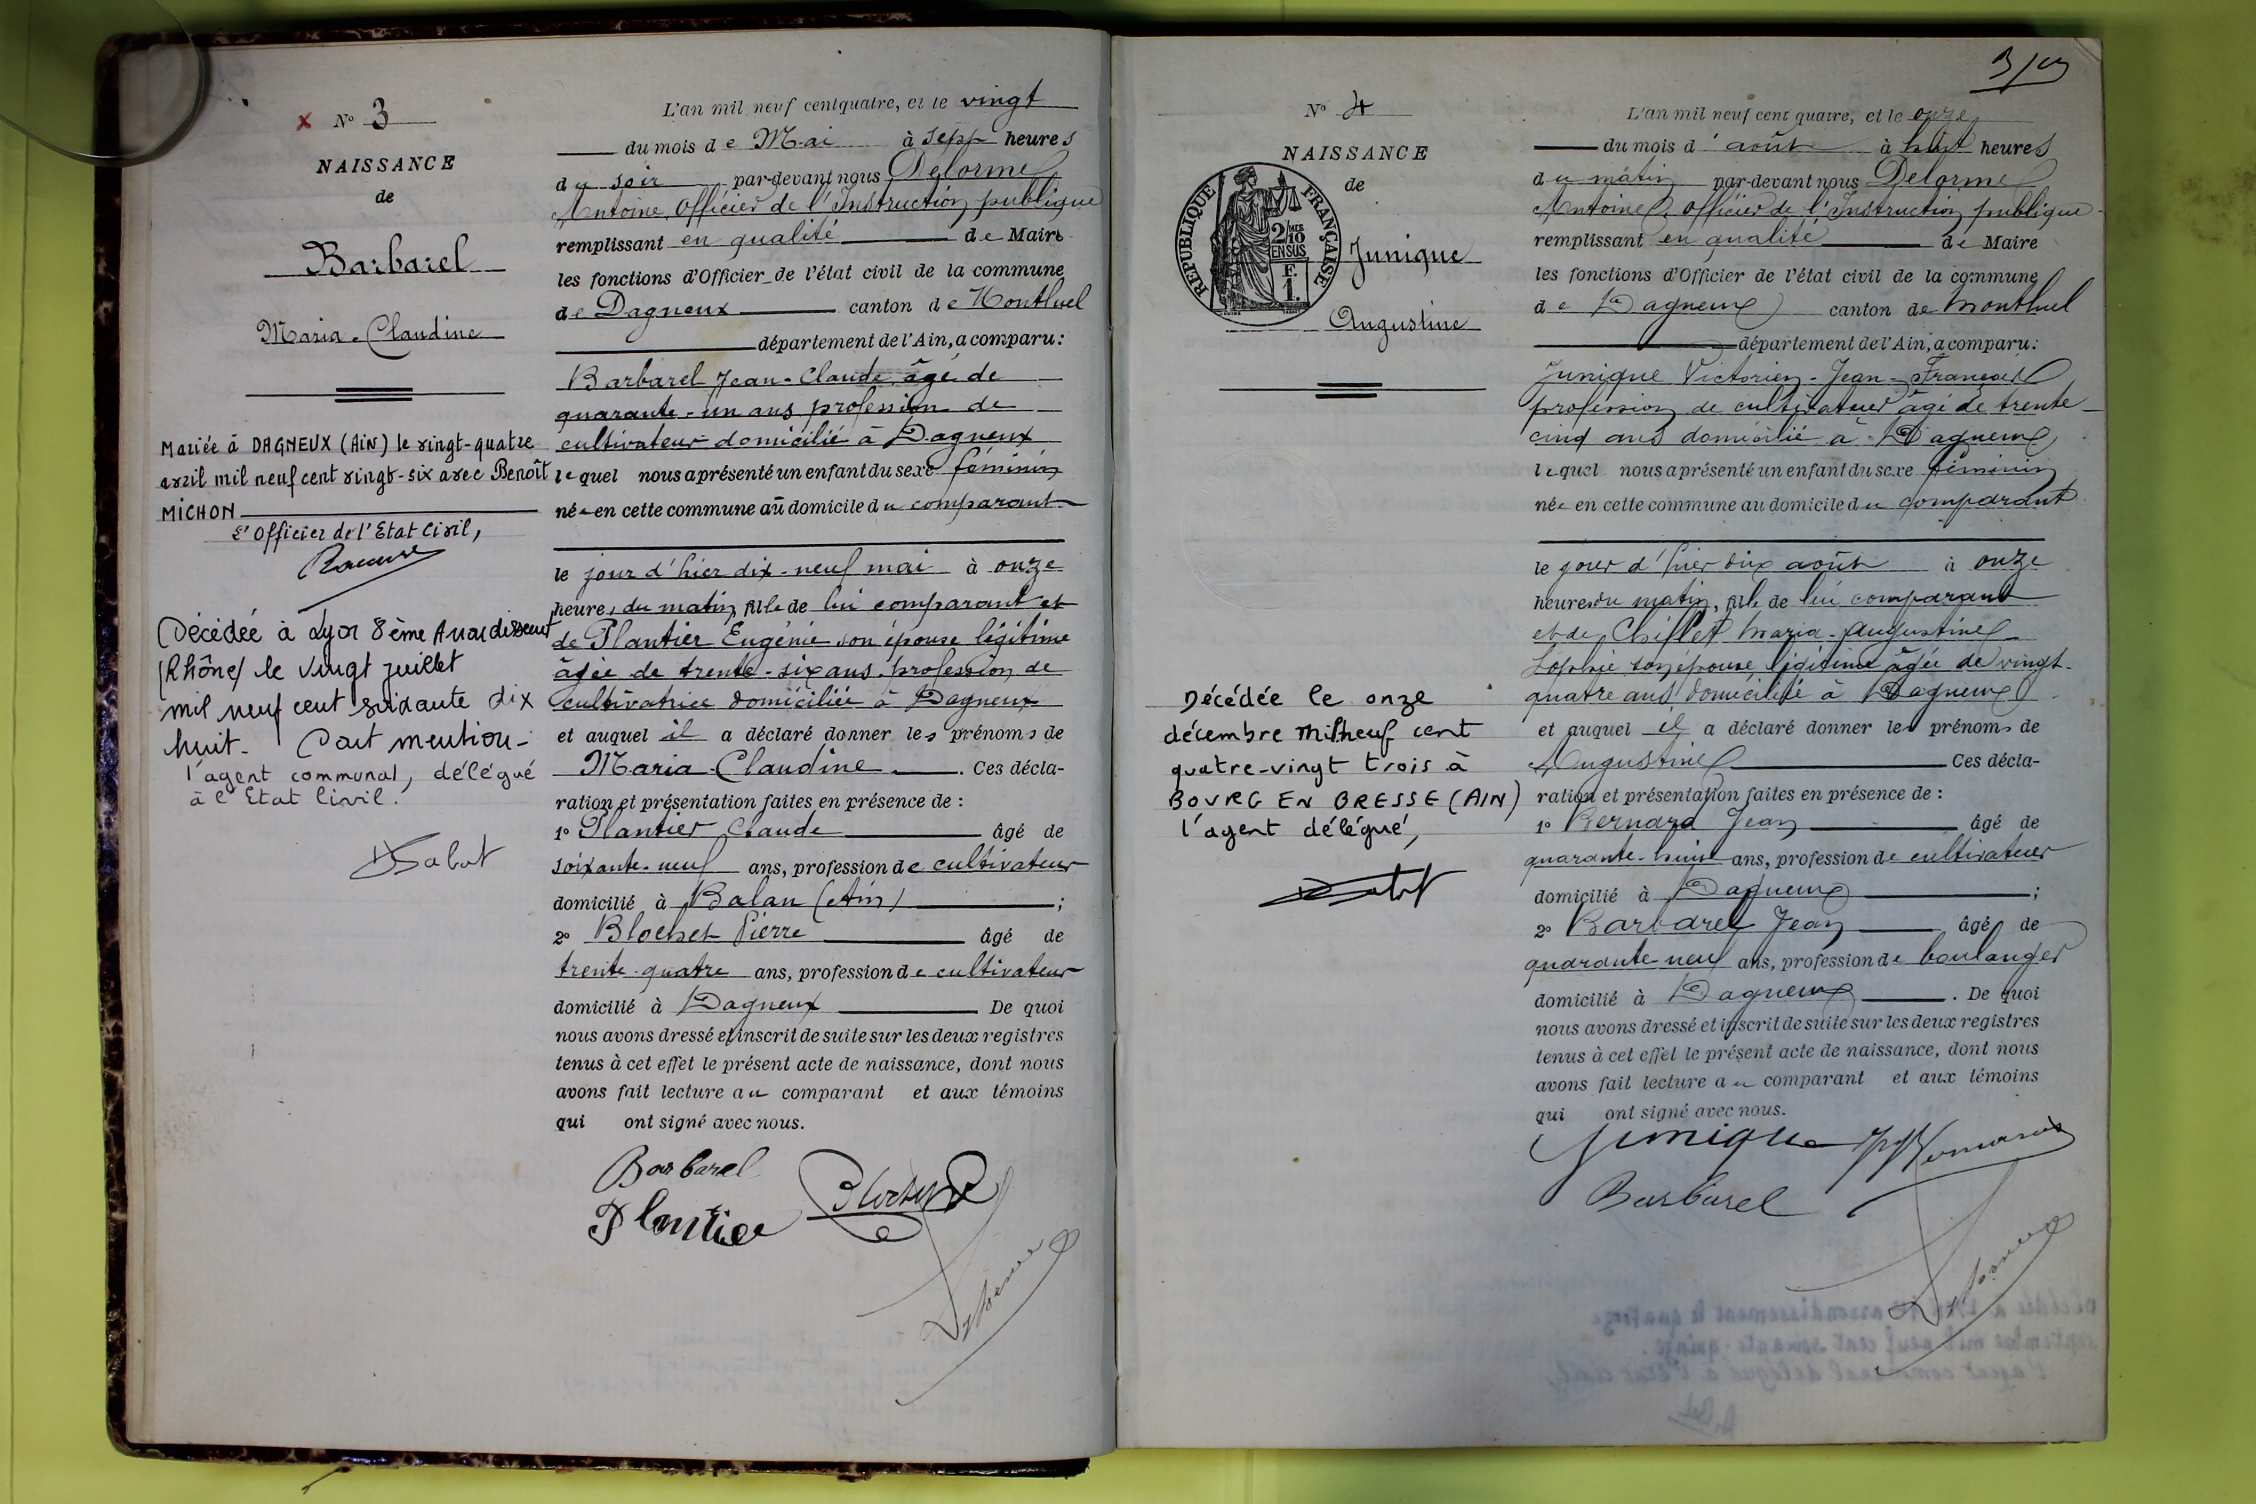 × N° 3
NAISSANCE
de
Barbarel
Maria-Claudine
Mariée à DAGNEUX (AiN) le vingt-quatre
avril mil neuf cent vingt-six avec Benoît
MICHON
L'Officier de l'Etat Civil,
Décédée à Lyon 8ème Arrondissement
(Rhône) le vingt juillet
mil neuf cent soixante dix
huit. Dont mention-
l'agent communal, délégué
à l'Etat Civil.
L'an mil neuf cent quatre, et le vingt
du mois de Mai à sept heures
du soir par-devant nous Delorme
Antoine, Officier de l'Instruction publique
remplissant en qualité de Maire
les fonctions d'Officier de l'état civil de la commune
de Dagneux canton de Montluel
département de l'Ain, a comparu :
Barbarel Jean-Claude âgé de
quarante-un ans profession de
cultivateur domicilié à Dagneux
lequel nous a présenté un enfant du sexe féminin
née en cette commune au domicile du comparant
le jour d'hier dix-neuf mai à onze
heures du matin, fille de lui comparant et
de Plantier Eugénie son épouse légitime
âgée de trente-six ans profession de
cultivatrice domiciliée à Dagneux
et auquel il a déclaré donner les prénoms de
Maria-Claudine. Ces décla-
ration et présentation faites en présence de :
1° Plantier Claude âgé de
soixante-neuf ans, profession de cultivateur
domicilié à Balan (Ain) ;
2° Blochet Pierre âgé de
trente-quatre ans, profession de cultivateur
domicilié à Dagneux De quoi
nous avons dressé et inscrit de suite sur les deux registres
tenus à cet effet le présent acte de naissance, dont nous
avons fait lecture au comparant et aux témoins
qui ont signé avec nous.
Barbarel
Plantier Blochet
Delorme
N° 4
NAISSANCE
de
REPUBLIQUE FRANÇAISE
2/10 MES
EN SUS
F.
1.
Junique
Augustine
Décédée le onze
décembre mil neuf cent
quatre-vingt trois à
BOURG EN BRESSE (AIN)
l'agent délégué,
L'an mil neuf cent quatre, et le onze
du mois d'août à huit heures
du matin par-devant nous Delorme
Antoine, Officier de l'Instruction publique
remplissant en qualité de Maire
les fonctions d'Officier de l'état civil de la commune
de Dagneux canton de Montluel
département de l'Ain, a comparu :
Junique Victorien-Jean-François
profession de cultivateur âgé de trente-
cinq ans domicilié à Dagneux
lequel nous a présenté un enfant du sexe féminin
née en cette commune au domicile du comparant
le jour d'hier dix août à onze
heures du matin, fille de lui comparant
et de Chillet Maria-Augustine
Sophie son épouse légitime âgée de vingt-
quatre ans domiciliée à Dagneux
et auquel il a déclaré donner les prénoms de
Augustine Ces décla-
ration et présentation faites en présence de :
1° Bernard Jean âgé de
quarante-huit ans, profession de cultivateur
domicilié à Dagneux ;
2° Barbarel Jean âgé de
quarante-neuf ans, profession de boulanger
domicilié à Dagneux. De quoi
nous avons dressé et inscrit de suite sur les deux registres
tenus à cet effet le présent acte de naissance, dont nous
avons fait lecture au comparant et aux témoins
qui ont signé avec nous.
Junique
Barbarel
Delorme